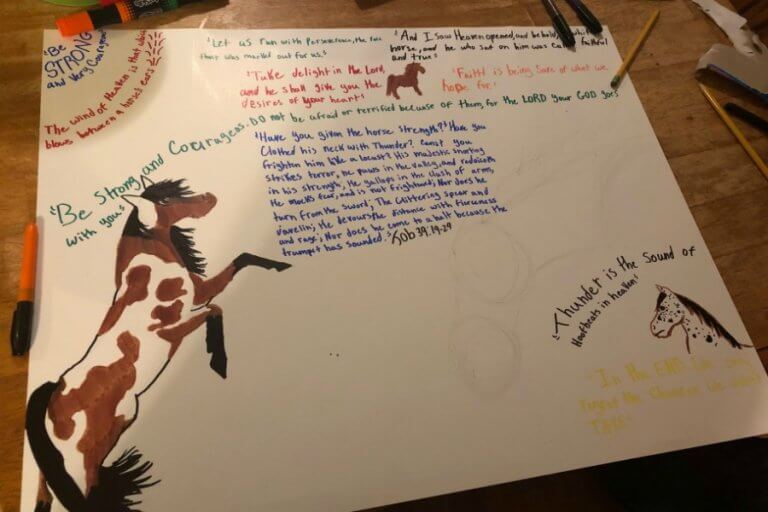 "Be
STRONG
and Very
"The wind of Heaven is that which
blows between a horses ears"
"Let us run with Perseverence, the
that was marked out for us."
"And I Saw Heaven opened, and behold,
horse, and he who sat on him was called faithful
and true"
"Take delight in the Lord,
and he shall give you the
desires of your heart"
"Faith is being Sure of what we
hope for"
"Be Strong and Courageous. DO not be afraid or terrified because of them, for the LORD your GOD goes
with you"
"Have you given the horse strength? Have you
Clothed his neck with Thunder? Canst you
frighten him like a locust? His majestic snorting
strikes terror, he paws in the valley, and
in his strength, He gallops in the clash of arms,
He mocks fear, and is not frightned; Nor does he
turn from the sword; The Glittering spear and
Javelin; He devours the distance with fierceness
and rage; Nor does he come to a halt because the
trumpet has sounded." Job 39:19-29
"Thunder is the Sound of
Hoofbeats in heaven"
"In the END,
the Chances we